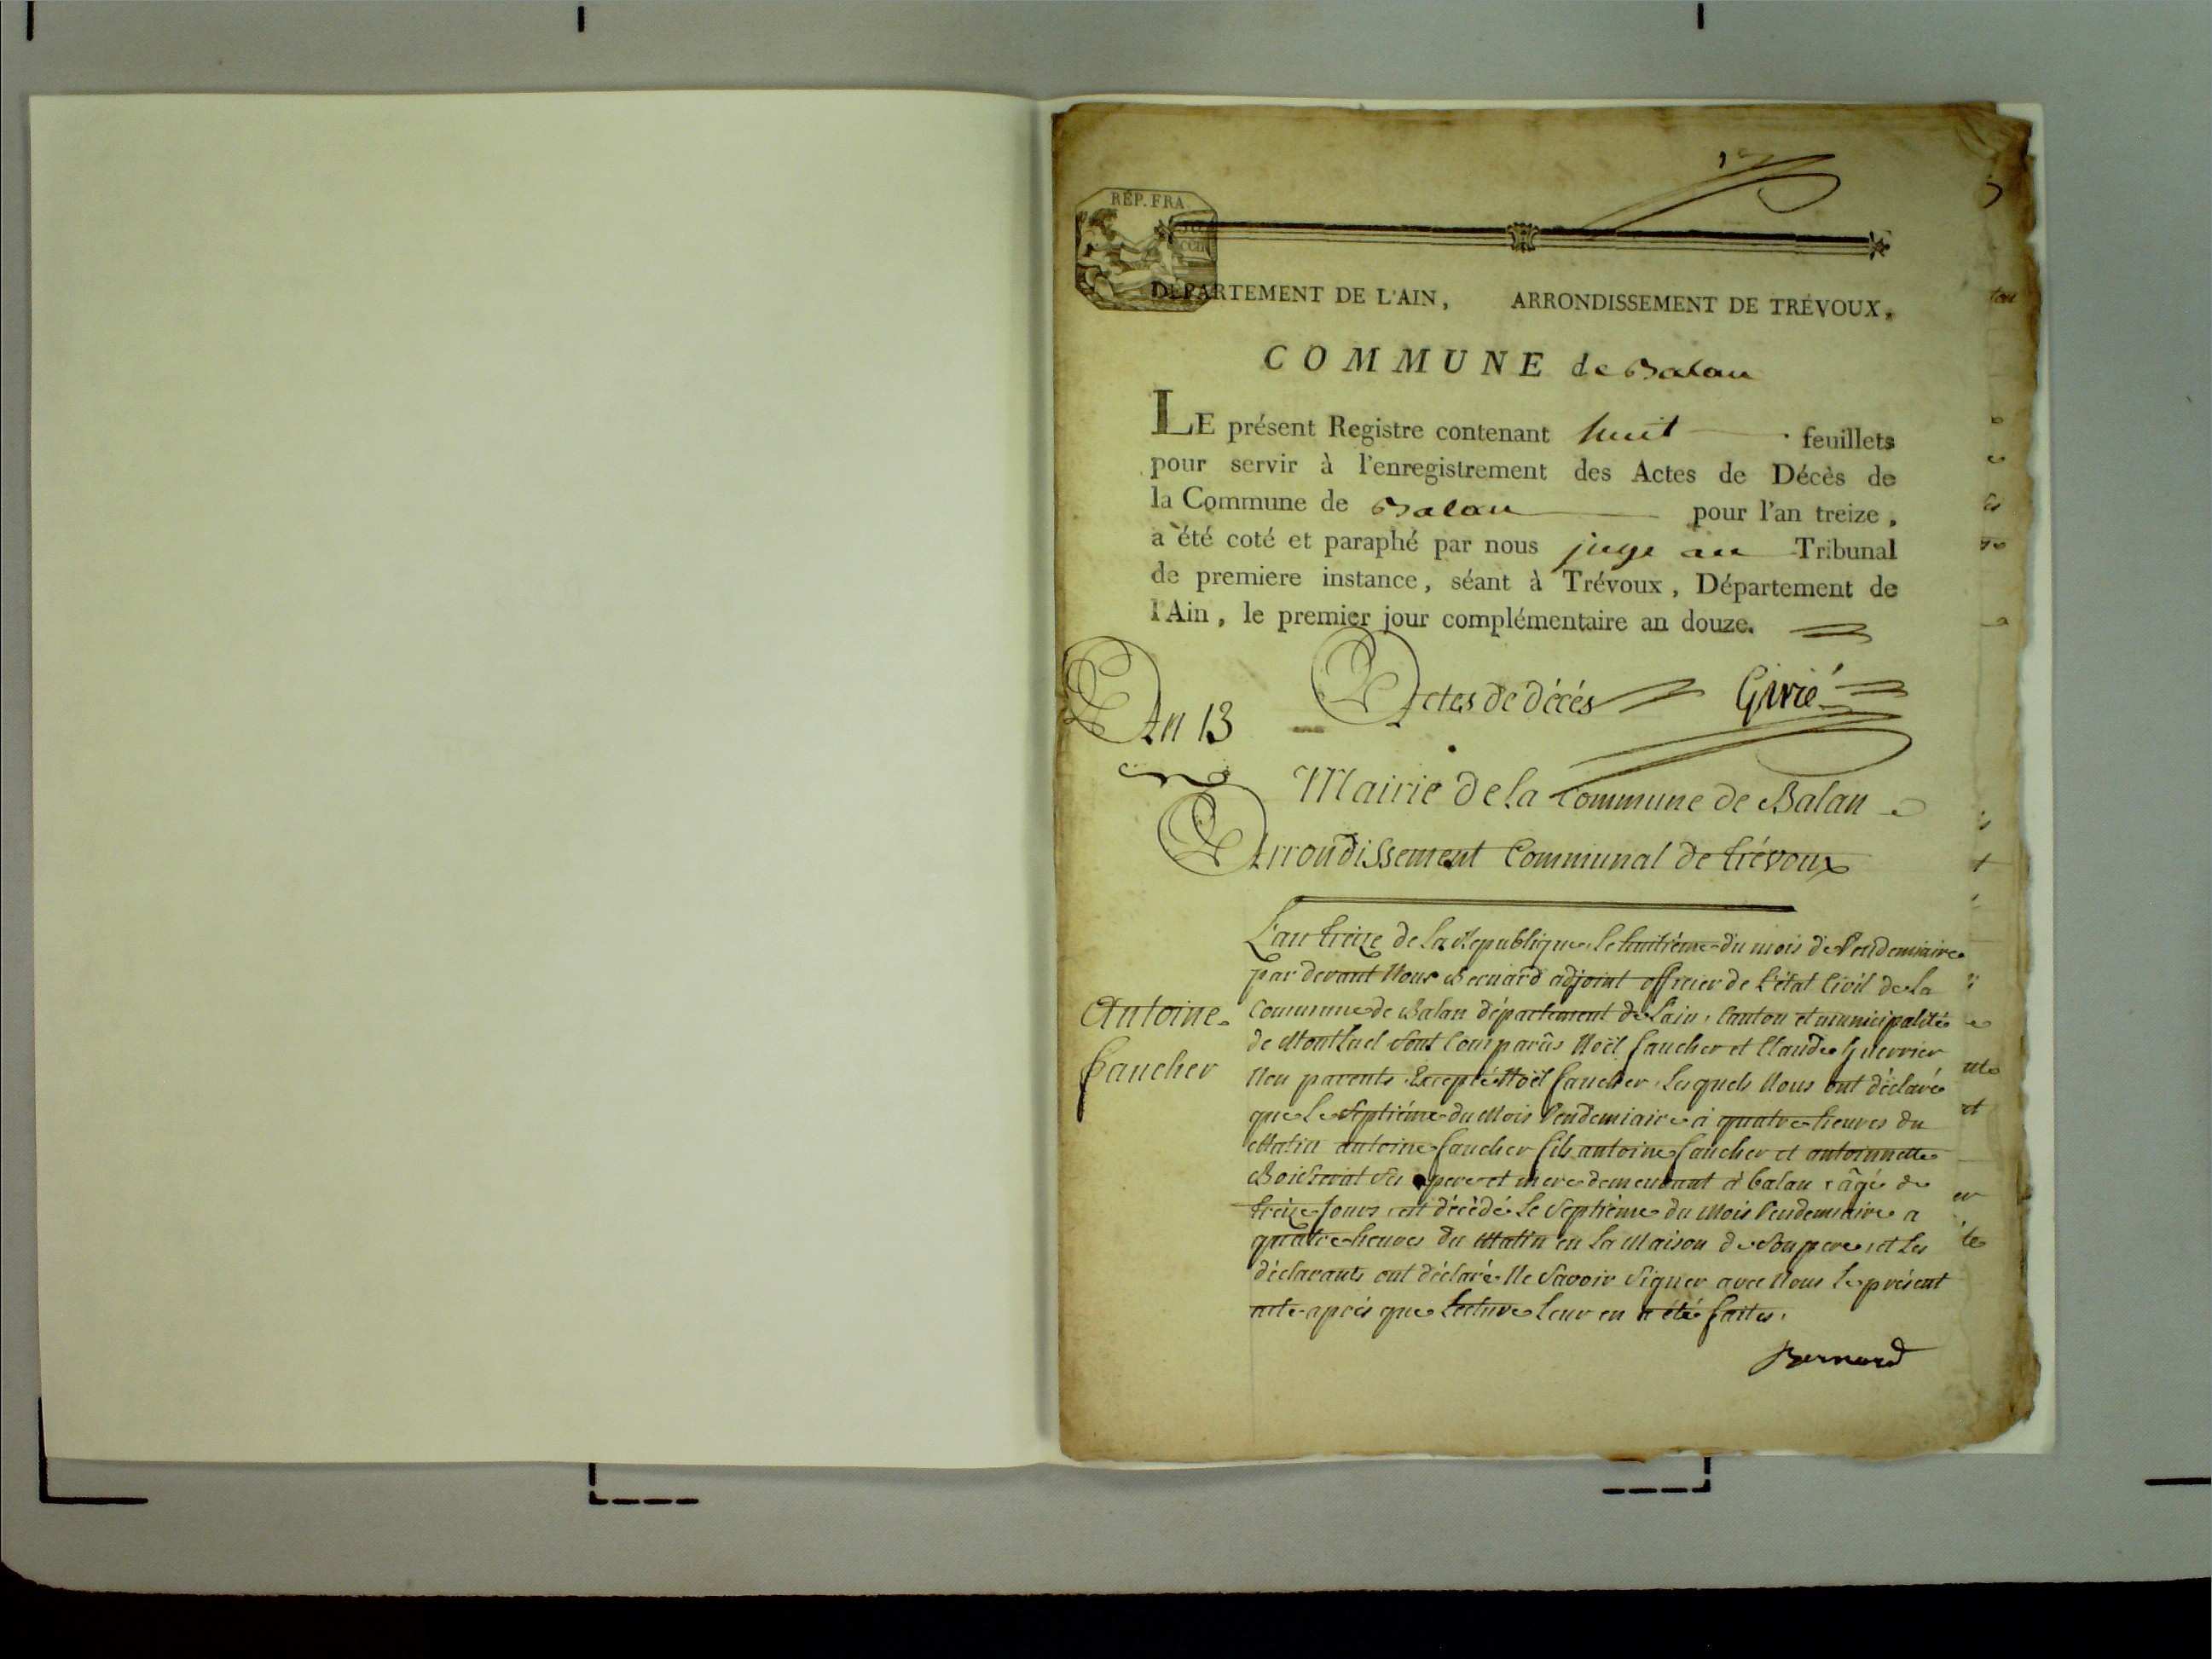 RÉP. FRA.
DÉPARTEMENT DE L'AIN, ARRONDISSEMENT DE TRÉVOUX,
COMMUNE de Balan
LE présent Registre contenant huit feuillets
pour servir à l'enregistrement des Actes de Décès de
la Commune de Balan pour l'an treize,
a été coté et paraphé par nous juge au Tribunal
de premiere instance, séant à Trévoux, Département de
l'Ain, le premier jour complémentaire an douze.
Actes de décés
An 13
Mairie de la Commune de Balan
Arrondissement Communal de trévoux
L'an treize de la Republique, le huitiéme du mois de Vendemiaire
par devant Nous Bernard adjoint officier de L'état Civil de la
Commune de Balan département de Lain, Canton et municipalité
de Montluel sont Comparûs Noël faucher et Claude Guerrier
Non parents Excepté Noël faucher, Lesquels Nous ont déclaré
que Le Septiéme du Mois Vendemiaire à quatre heures du
Matin antoine faucher fils antoine faucher et antoinnette
ses pere et mere demeurant à balan, âgé de
treize Jours, est décédé Le Septiéme du Mois Vendemiaire a
quatre heures du Matin en La Maison de Son pere, et Les
déclarants ont déclaré Ne Savoir Signer avec Nous Le présent
acte après que Lecture Leur en a été faites.
Antoine
faucher
Bernard